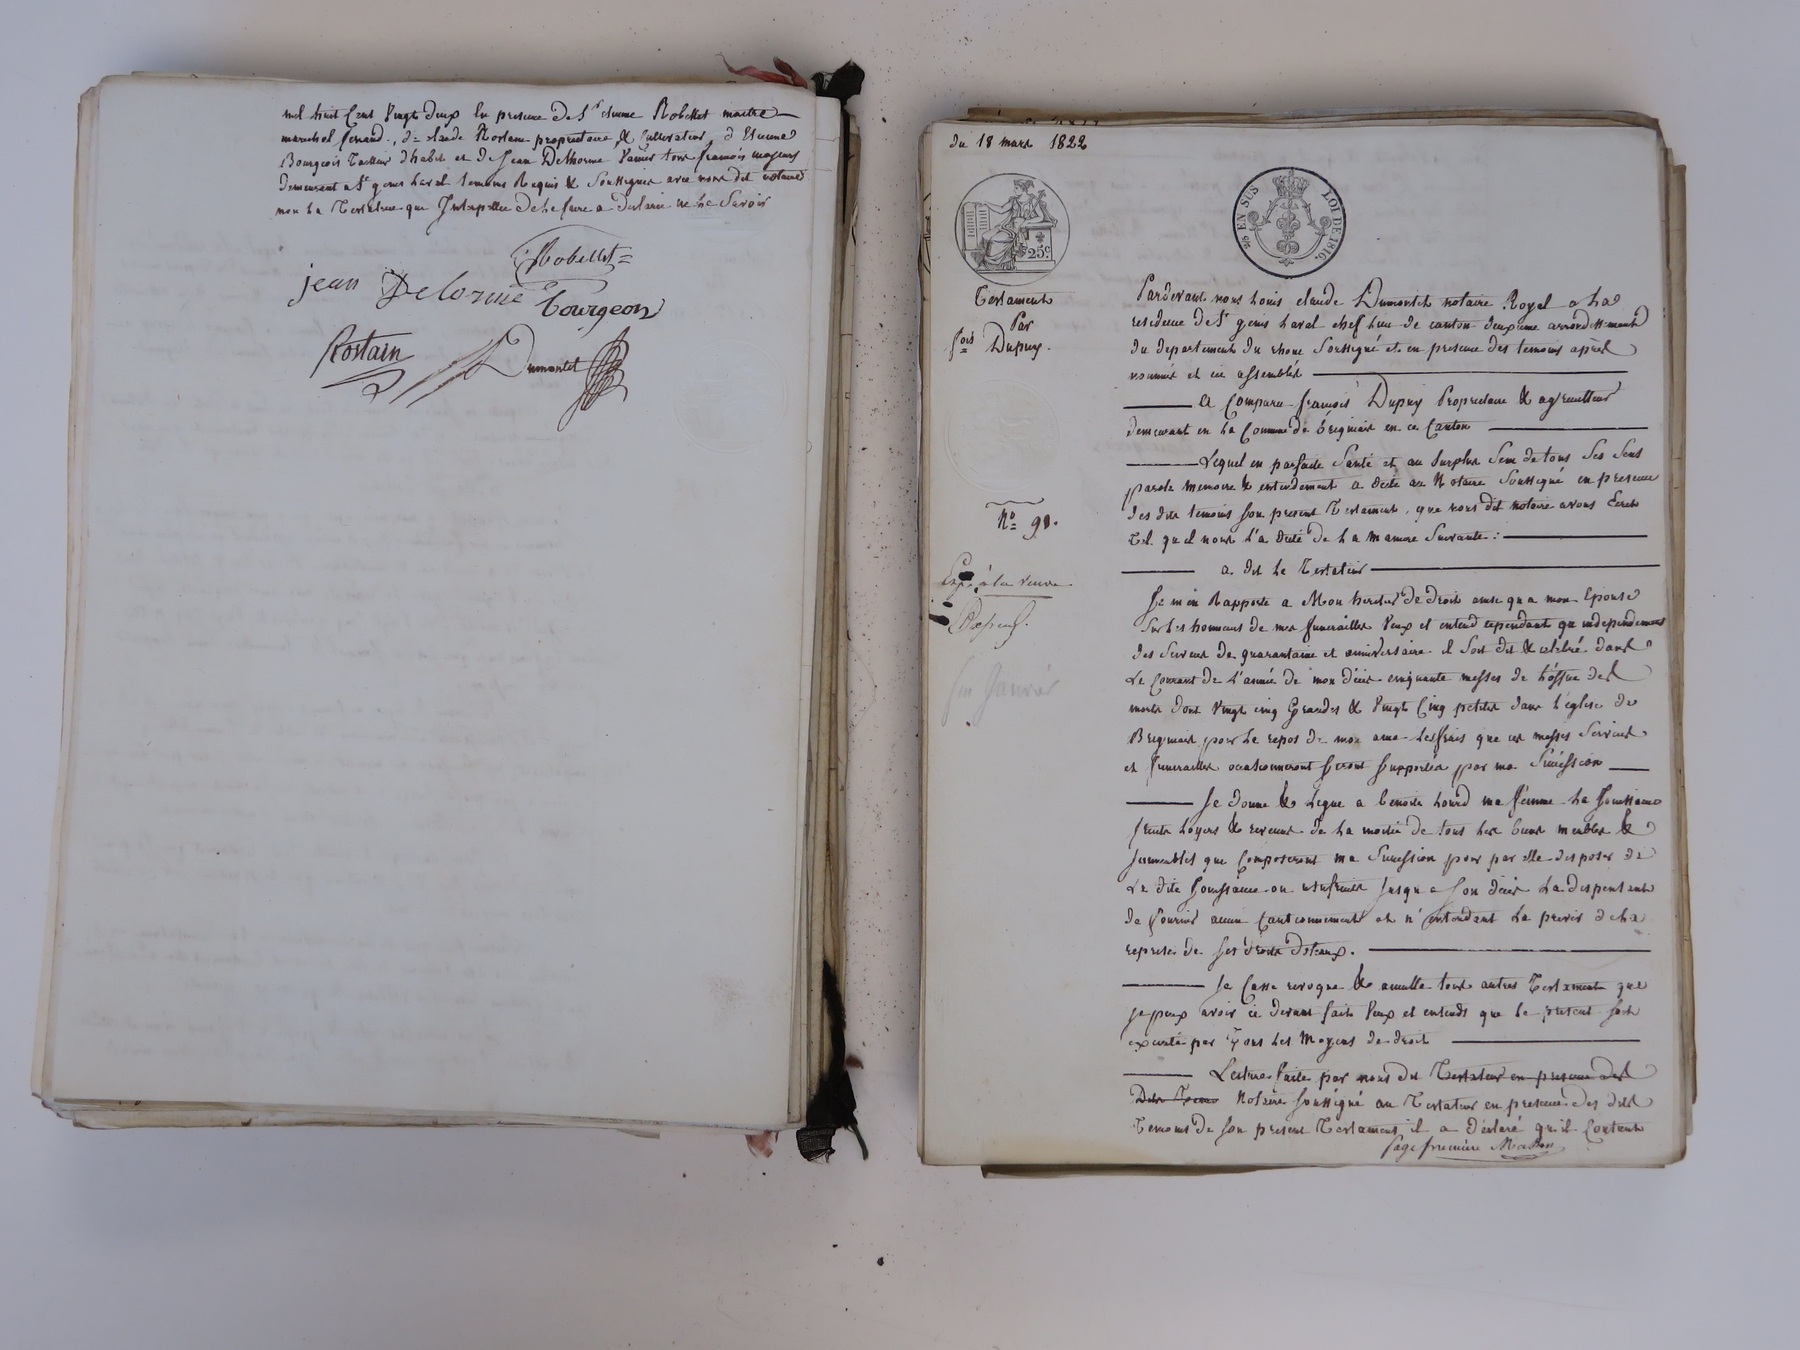 mil huit Cent Vingt deux En presence de Sr etienne Robellet maitre
marechal ferrand., de claude Rostain propriétaire & Cultivateur, d'Etienne
Bourgeois Tailleur d'habits et de Jean Delhorme Vanier tous francois majeurs
demeurent a St genis Laval temoins Requis & Soussignés avec nous dit notaire
non la Testatrice que Interpellée de le faire a declaré ne le Savoir
Robellet
jean Delorme bourgeon
Rostain Dumontet
du 18 mars 1822
25c.
25 EN SUS LOI DE 1816.
Testament
Par
fois Dupuy.
Pardevant nous Louis claude Dumontet notaire Royal a La
residence de St genis Laval chef lieu de canton deuxieme arrondissement
du departement du rhone Soussigné et en presence des temoins après
nommés et ici assemblés
A Comparu francois Dupuy Proprietaire & agriculteur
demeurant en La Commune de brignais en ce Canton
Lequel en parfaite Santé et au Surplus Sein de tous Ses Sens
parole memoire & entendement a dicté au Notaire Soussigné en presence
des dits temoins Son present Testament, que nous dit notaire avons Ecrit
Tel qu'il nous l'a dicté de La maniere Suivante :
No 91.
a dit le Testateur
Expé à la veuve
Dupuy.
Je m'en Rapporte a Mon heritier de droit ainsi qu'a mon Epouse
Sur les honneurs de mes funerailles Veux et entend cependant qu'independament
des Services de quarantaine et anniversaire il Soit dit & célébré dans
Le Courant de L'année de mon décès cinquante messes de L'office des
morts dont Vingt cinq Grandes & Vingt Cinq petites dans L'église de
Brignais pour Le repos de mon ame Les frais que ces messes Services
et funerailles occasionneront Seront Supportés par ma Succession
Je donne & Legue a benoite Lourd ma femme La Jouissance
fruits Loyers & revenus de La moitié de tous Les biens meubles &
Immeubles que Composeront ma Succession pour par elle disposer de
La dite Jouissance ou usufruit Jusqu'a Son décès La dispensant
de fournir aucun Cautionnement et n'entendant La priver de La
reprise de Ses droits dotaux.
Je Casse revoque & annulle tous autres Testament que
Je peux avoir ci devant fait Veux et entends que Le present Soit
executé par Tous Les Moyens de droit
Lecture faite par nous dit Testateur en presence des
Dits Temoins Notaire Soussigné au Testateur en presence des dits
Temoins de Son present Testament il a déclaré qu'il Contient
Page première Masson